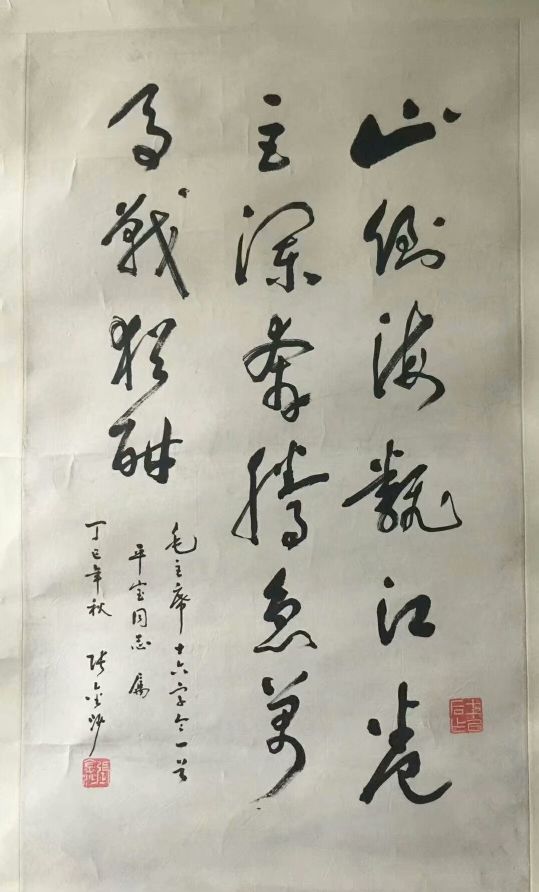 山倒海翻江卷
巨瀾奔騰急萬
馬戰猶酣
毛主席十六字令一首
平宝同志属
丁巳年秋 张金